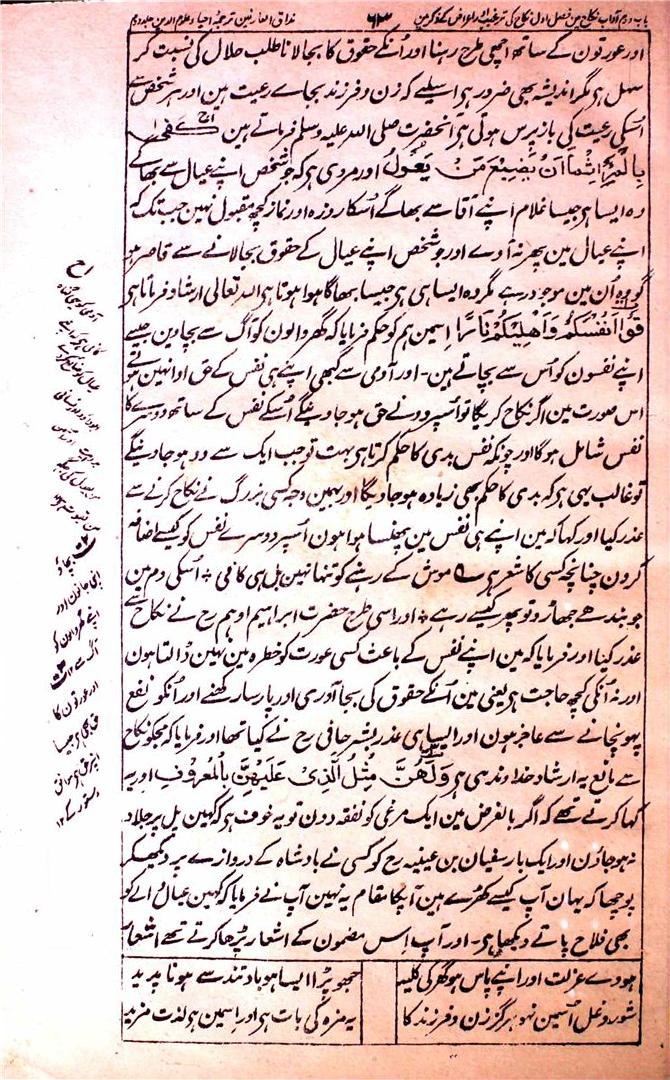 باب دوم آداب نکاح میں فصل اول نکاح کی ترغیب اور اعراض کے ذکر میں ۶۳ مذاق العارفین ترجمۂ احیاء علوم الدین جلد دوم
اور عورتون کے ساتھ اچھی طرح رہنا اور اُنکے حقوق کا بجالانا طلب حلال کی نسبت کر
سہل ہی مگر اندیشہ بھی ضرور ہی اسلیے کہ زن و فرزند بجاے رعیت ہین اور ہر شخص سے
اُسکی رعیت کی باز پرس ہوتی ہی آنحضرت صلی اللہ علیہ وسلم فرماتے ہین کفی
بِالْمَرْءِ اِثْمًا اَنْ یُّضِیْعَ مَنْ یَعُوْلُ اور مروی ہی کہ جو شخص اپنے عیال سے بھاگے
وہ ایسا ہی جیسا غلام اپنے آقا سے بھاگے اُسکا روزہ اور نماز کچھ مقبول نہین جب تک کہ
اپنے عیال مین پھر نہ آوے اور جو شخص اپنے عیال کے حقوق بجالانے سے قاصر ہو
گو وہ اُن مین موجود رہے مگر وہ ایسا ہی ہی جیسا بھاگا ہوا ہوتا ہی اللہ تعالی ارشاد فرماتا ہی
قُوْا اَنْفُسَکُمْ وَاَھْلِیْکُمْ نَارًا اِسمین ہم کو حکم فرمایا کہ گھر والون کو آگ سے بچاوین جیسے
اپنے نفسون کو اُس سے بچاتے ہین۔ اور آدمی سے کبھی اپنے ہی نفس کے حق ادا نہین ہوتے
اس صورت مین اگر نکاح کریگا تو اُسپر دونے حق ہوجاوینگے اُسکے نفس کے ساتھ دوسرے کا
نفس شامل ہوگا اور چونکہ نفس بدی کا حکم کرتا ہی بہت تو جب ایک سے دو ہوجاوینگے
تو غالب یہی ہی کہ بدی کا حکم بھی زیادہ ہوجاویگا اور بہین وجہ کسی بزرگ نے نکاح کرنے سے
عذر کیا اور کہا کہ مین اپنے ہی نفس مین پھنسا ہوا ہون اُسپر دوسرے نفس کو کیسے اضافہ
کرون چنانچہ کسی کا شعر ہی موش کے رہنے کو تنہا نہین بل ہی کافی ؛ اُسکی دم مین
جو بندھے جھاڑو تو پھر کیسے رہے ؛ اور اسی طرح حضرت ابراہیم ادہم رح نے نکاح سے
عذر کیا اور فرمایا کہ مین اپنے نفس کے باعث کسی عورت کو خطرہ مین نہین ڈالتا ہون
اور نہ اُنکی کچھ حاجت ہی یعنی مین اُنکے حقوق کی بجا آوری اور پارسا رکھنے اور اُنکو نفع
پہونچانے سے عاجز ہون اور ایسا ہی عذر بشر حافی رح نے کیا تھا اور فرمایا کہ مجکو نکاح
سے مانع یہ ارشاد خداوندی ہی وَلَھُنَّ مِثْلُ الَّذِیْ عَلَیْھِنَّ بِالْمَعْرُوْفِ اور یہ
کہا کرتے تھے کہ اگر بالفرض مین ایک مرغی کو نفقہ دون تو یہ خوف ہی کہ کہین پل پر جلاد
نہ ہوجاؤن اور ایک بار سفیان بن عیینہ رح کو کسی نے بادشاہ کے دروازے پر دیکھکر
پوچھا کہ یہان آپ کیسے کھڑے ہین آپکا مقام یہ نہین آپ نے فرمایا کہ کہین عیال والے کو
بھی فلاح پاتے دیکھا ہی۔ اور آپ اِس مضمون کے اشعار پڑھا کرتے تھے اشعار
ہووے عزلت اور اپنے پاس ہو گھر کی کلید جھوپڑا ایسا ہو باد تند سے ہو ناپدید
شور و غل اُسمین نہو ہرگز زن و فرزند کا یہ مزہ کی بات ہی اور اِسمین ہی لذت مزید
بچاؤ
اپنی جانون اور
اپنے گھر والون کو
آگ سے ۱۲
اور عورتون کا
حق بھی ہی جیسا
اُنپر حق ہی موافق
دستور کے ۱۲